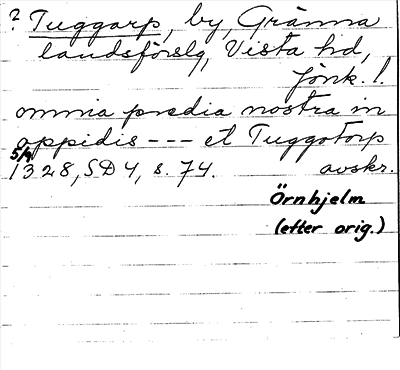 ? Tuggarp, by, Gränna
landsförslg, Vista hd,
Jönk. l.
omnia predia nostra in
oppidis --- et Tuggotorp
5/4
1328, SD 4, s. 74. avskr.
Örnhjelm
(efter orig.)